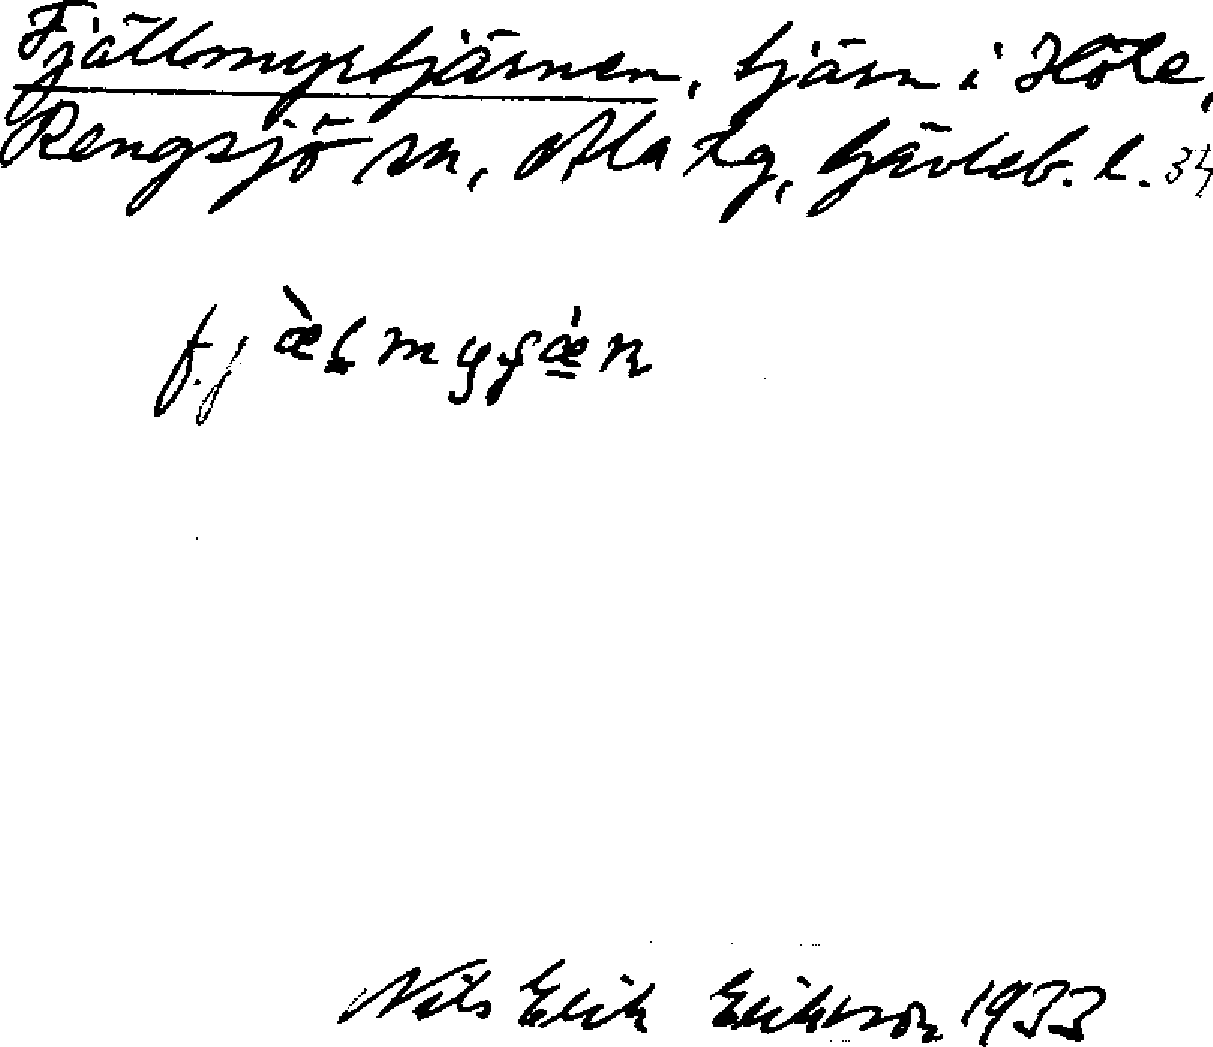 Fjällmyrtjärnen, tjärn i Höle,
Rengsjö sn, Ala tg, Gävleb. l. 34
fjæ̀ḷmyʃǽ̲n
Nils Erik Eriksson 1933